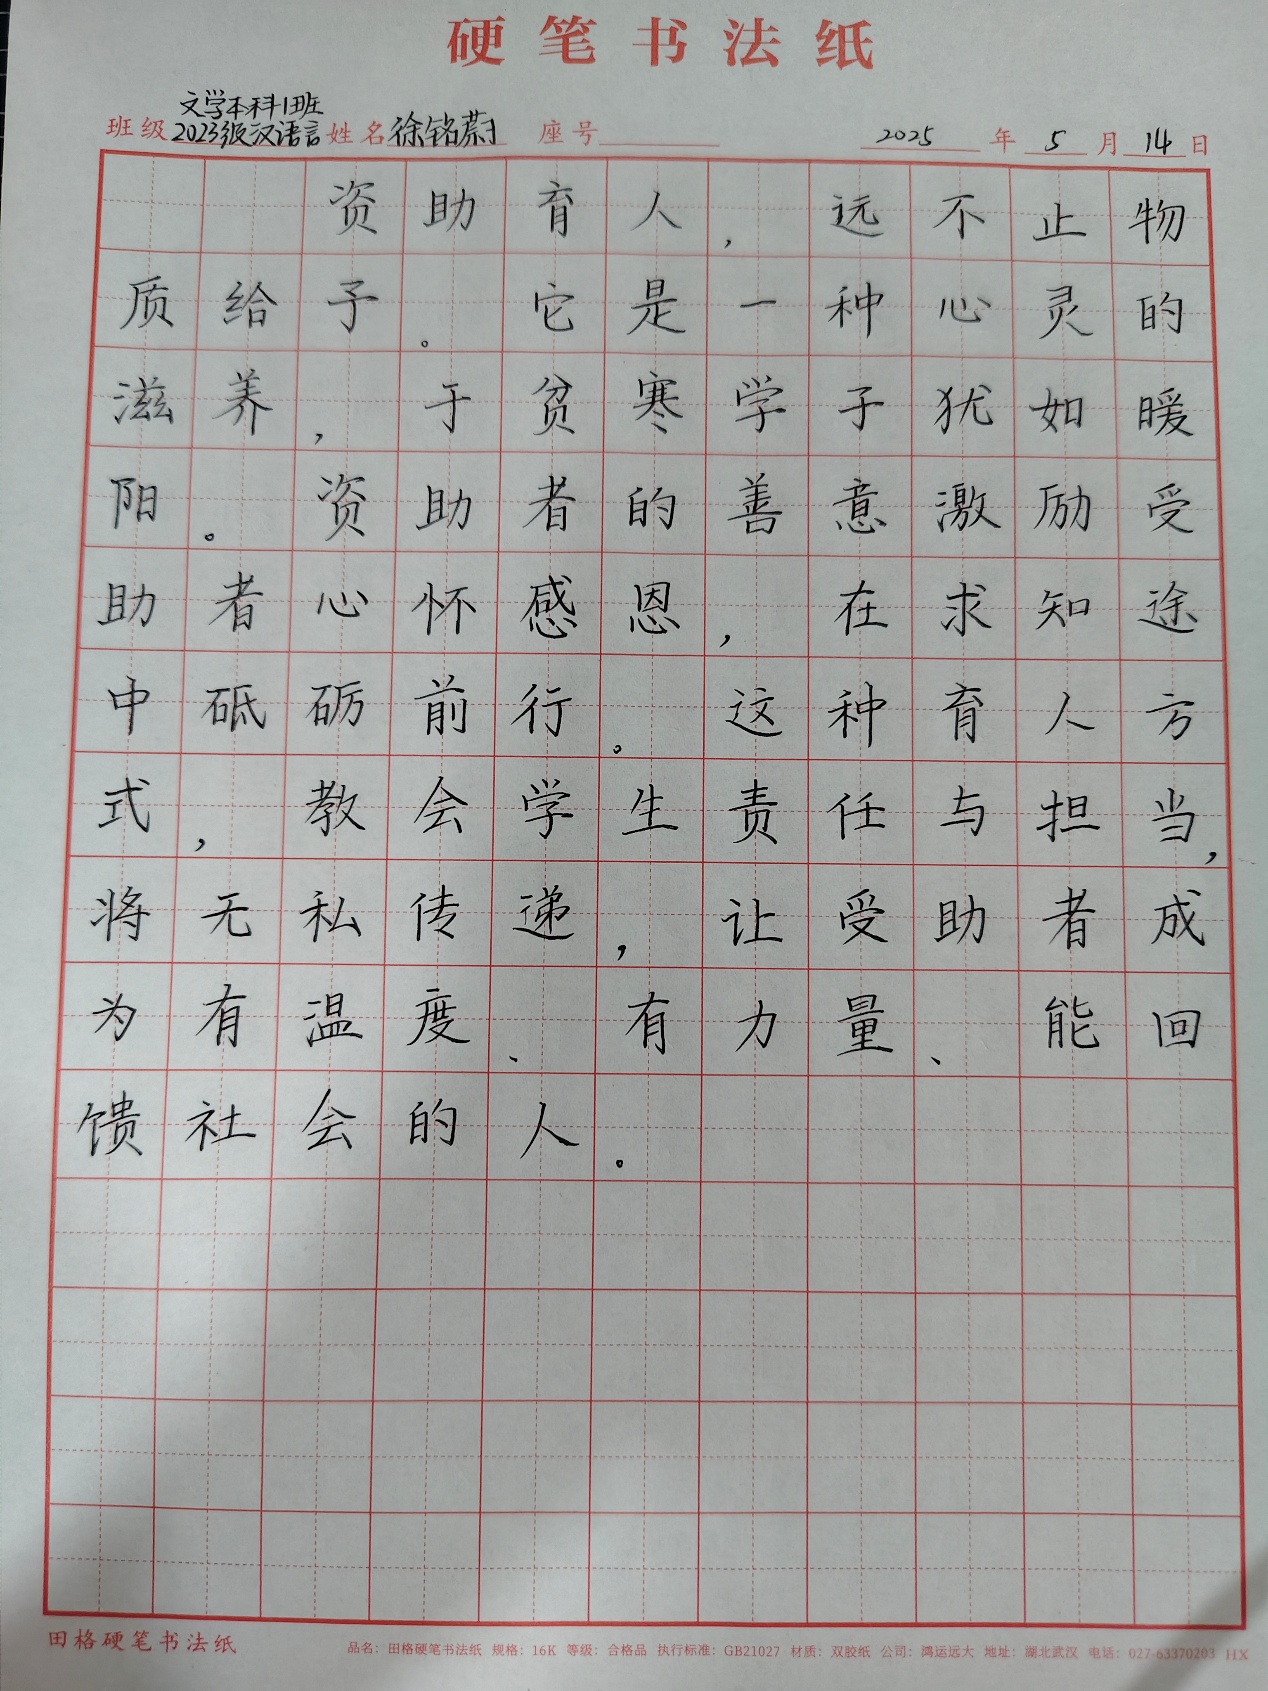 硬笔书法纸
文学本科1班
班级 2023级汉语言 姓名 徐铭蔚 座号 2025 年 5 月 14 日
资助育人，远不止物
质给予。它是一种心灵的
滋养，于贫寒学子犹如暖
阳。资助者的善意激励受
助者心怀感恩，在求知途
中砥砺前行。这种育人方
式，教会学生责任与担当，
将无私传递，让受助者成
为有温度、有力量、能回
馈社会的人。
田格硬笔书法纸 品名：田格硬笔书法纸 规格：16K 等级：合格品 执行标准：GB21027 材质：双胶纸 公司：鸿运远大 地址：湖北武汉 电话：027-63370203 HX